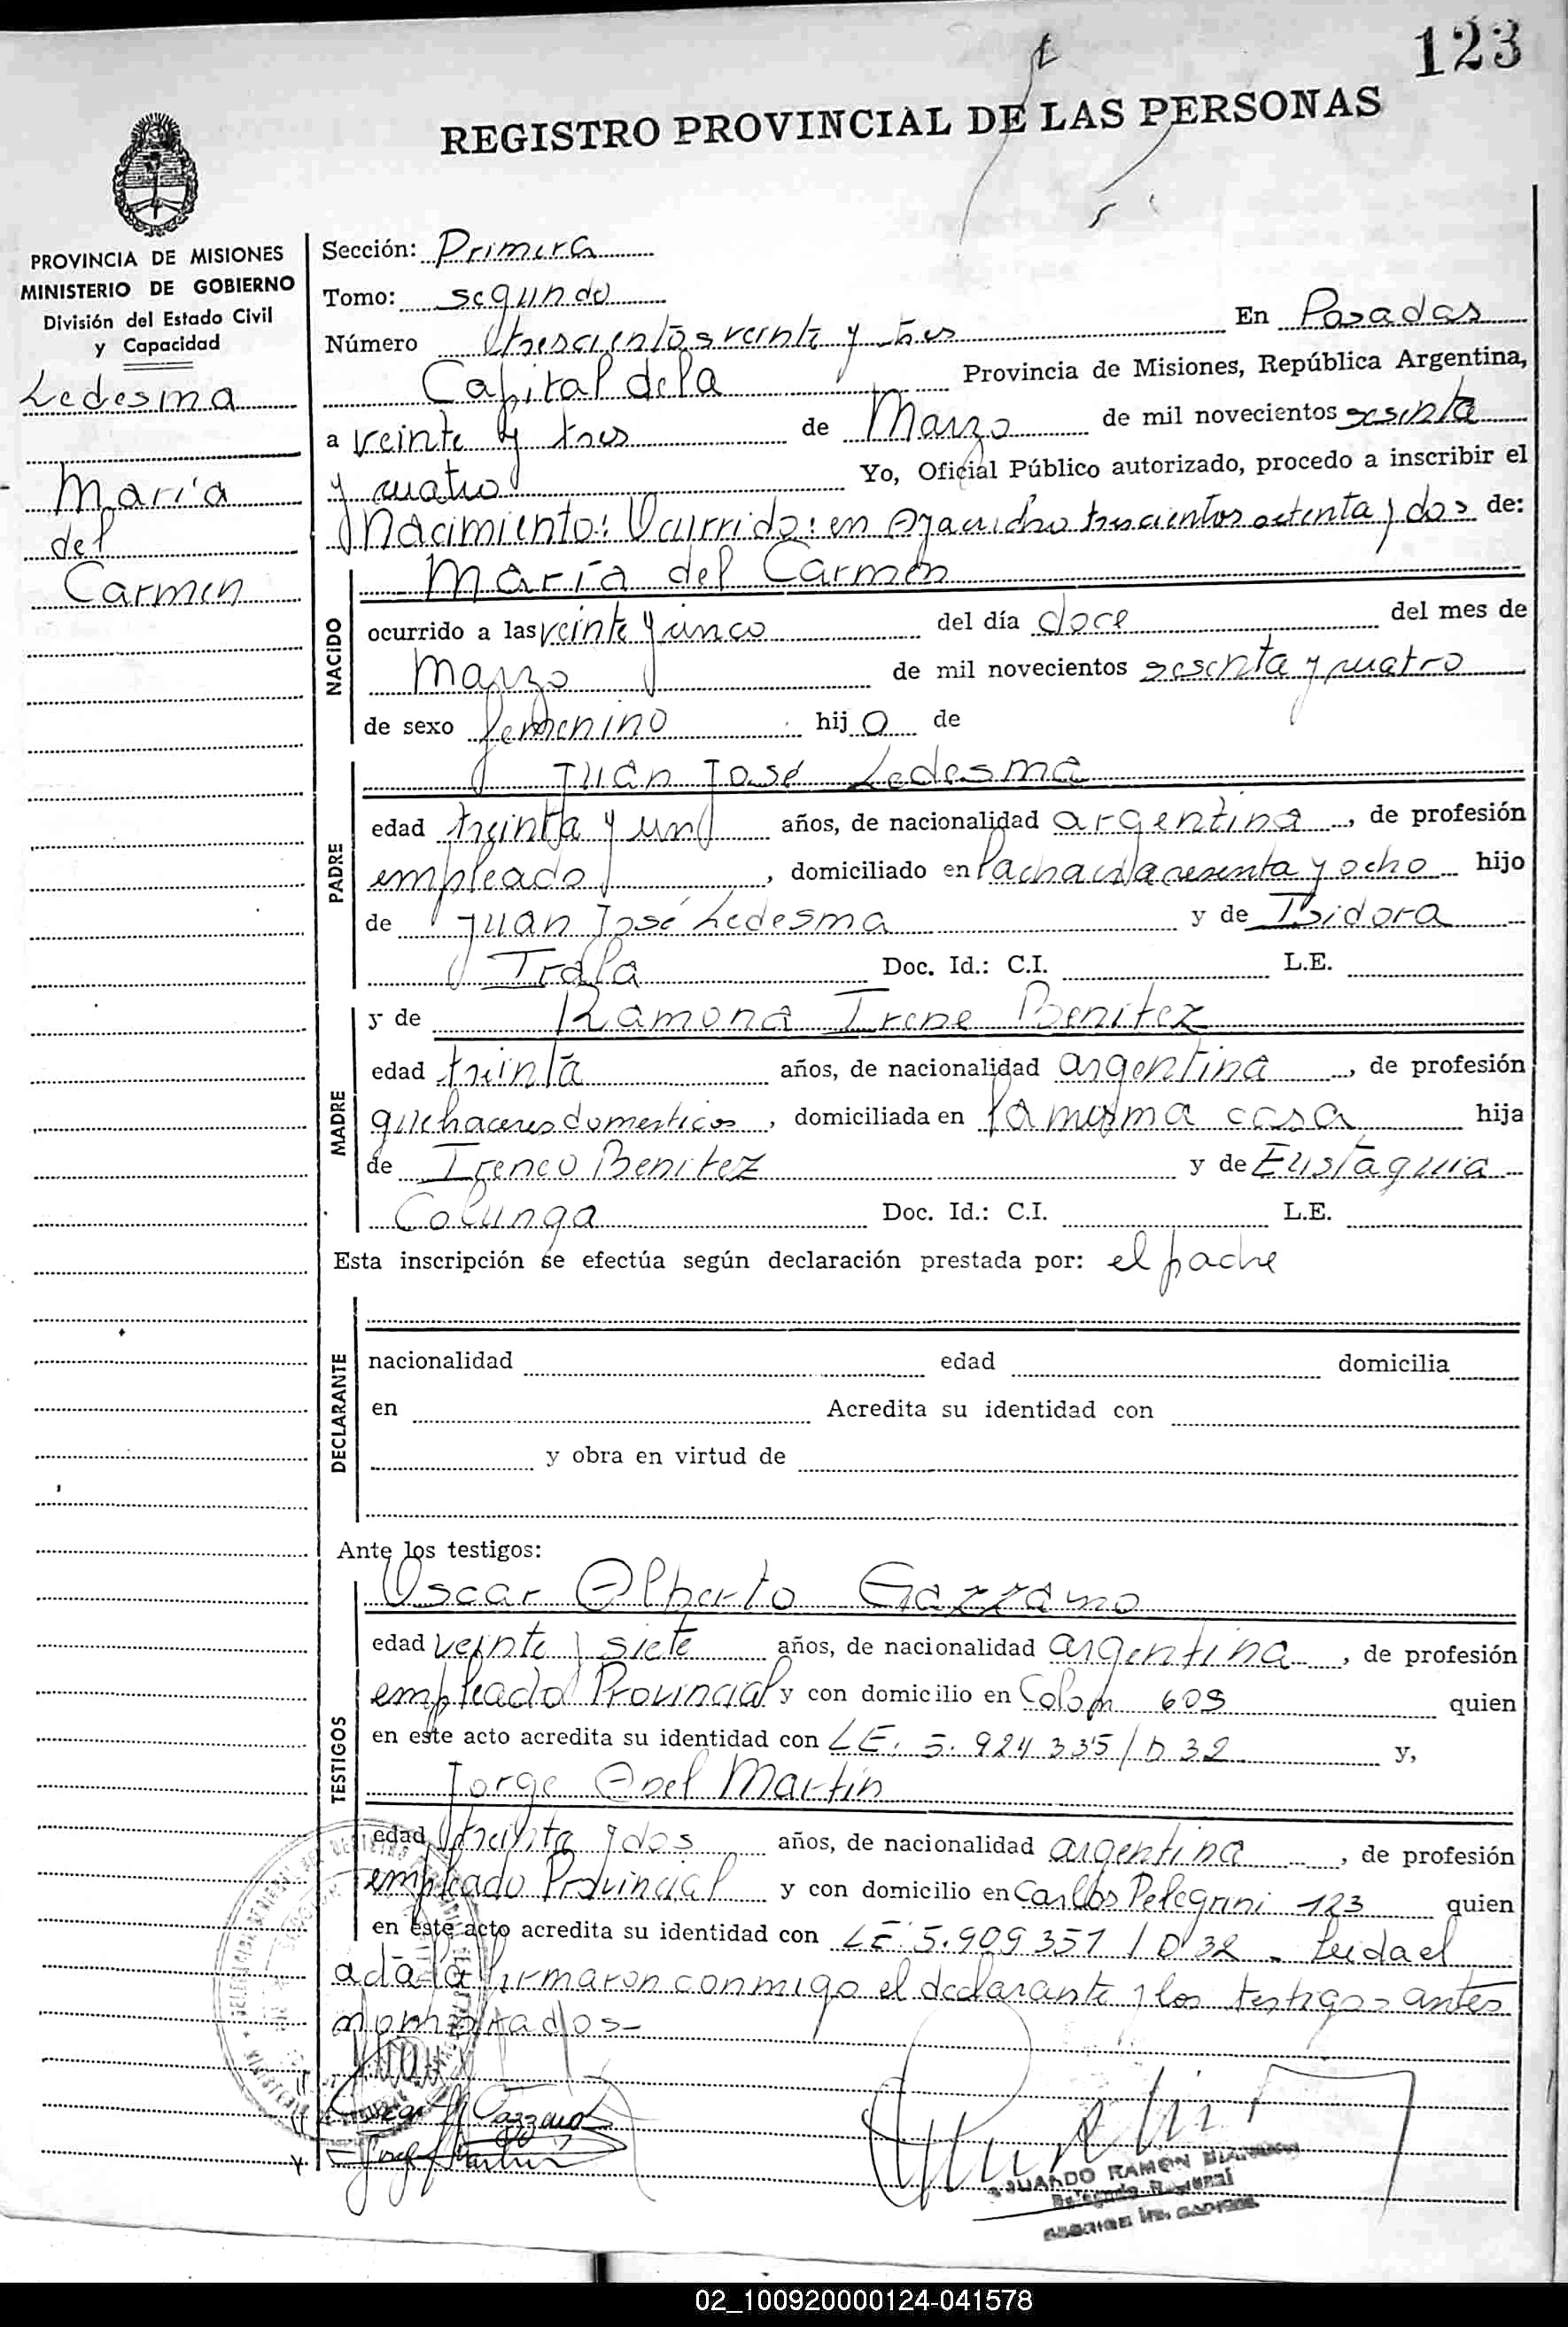 123
REGISTRO PROVINCIAL DE LAS PERSONAS
PROVINCIA DE MISIONES
MINISTERIO DE GOBIERNO
División del Estado Civil
y Capacidad
Ledesma
María
del
Carmen
Sección: Primera
Tomo: segundo
Número trescientos veinte y tres En Posadas
Capital de la Provincia de Misiones, República Argentina,
a veinte y tres de Marzo de mil novecientos sesenta
y cuatro Yo, Oficial Público autorizado, procedo a inscribir el
Nacimiento: Ocurrido: en Ayacucho trescientos setenta y dos de:
NACIDO
María del Carmen
ocurrido a las veinte y cinco del día doce del mes de
Marzo de mil novecientos sesenta y cuatro
de sexo femenino hijo de
PADRE
Juan José Ledesma
edad treinta y un años, de nacionalidad argentina, de profesión
empleado, domiciliado en Chacra sesenta y ocho hijo
de Juan José Ledesma y de Isidora
Irala Doc. Id.: C.I. L.E.
MADRE
y de Ramona Irene Benitez
edad treinta años, de nacionalidad argentina, de profesión
quehaceres domesticos, domiciliada en la misma casa hija
de Ireneo Benitez y de Eustaquia
Colunga Doc. Id.: C.I. L.E.
Esta inscripción se efectúa según declaración prestada por: el padre
DECLARANTE
nacionalidad edad domicilia
en Acredita su identidad con
y obra en virtud de
Ante los testigos:
TESTIGOS
Oscar Alberto Gazzano
edad veinte y siete años, de nacionalidad argentina, de profesión
empleado Provincial y con domicilio en Colon 609 quien
en este acto acredita su identidad con LE. 5.924335/D32 y,
Jorge Abel Martin
edad treinta y dos años, de nacionalidad argentina, de profesión
empleado Provincial y con domicilio en Carlos Pelegrini 123 quien
en este acto acredita su identidad con LE. 5.909357/D32 - Leida el
acta la firmaron conmigo el declarante y los testigos antes
nombrados-
RAMON
Delegado Regional
02_100920000124-041578